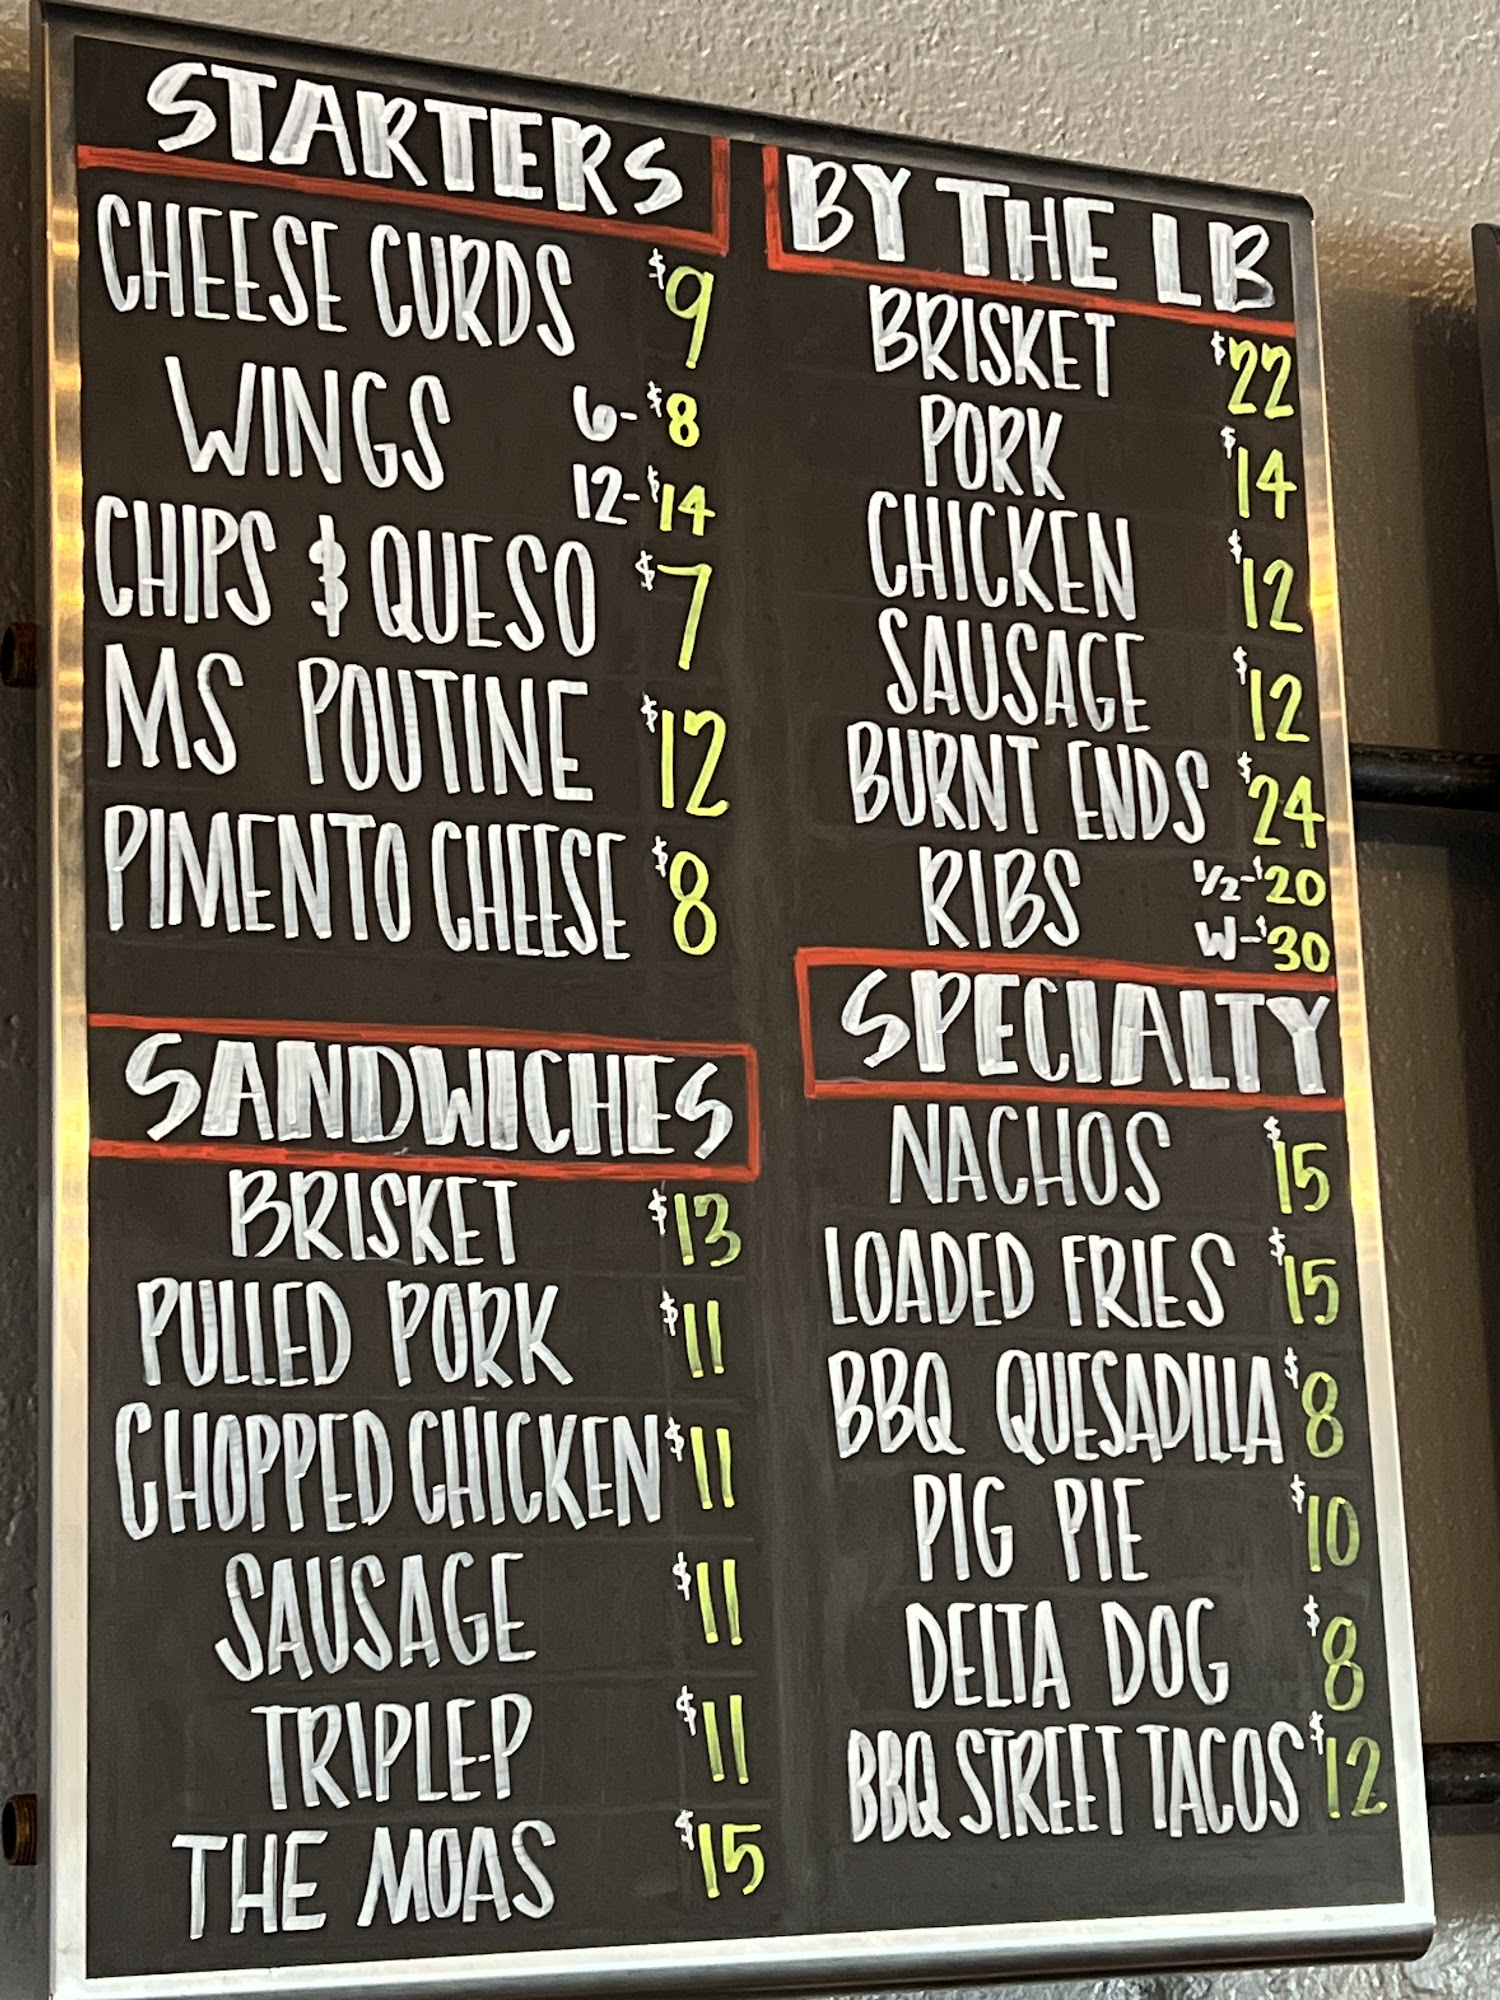 STARTERS
CHEESE CURDS $9
WINGS 6-$8
12-$14
CHIPS & QUESO $7
MS POUTINE $12
PIMENTO CHEESE $8
SANDWICHES
BRISKET $13
PULLED PORK $11
CHOPPED CHICKEN $11
SAUSAGE $11
TRIPLE-P $11
THE MOAS $15
BY THE LB
BRISKET $22
PORK $14
CHICKEN $12
SAUSAGE $12
BURNT ENDS $24
RIBS 1/2-$20
W-$30
SPECIALTY
NACHOS $15
LOADED FRIES $15
BBQ QUESADILLA $8
PIG PIE $10
DELTA DOG $8
BBQ STREET TACOS $12